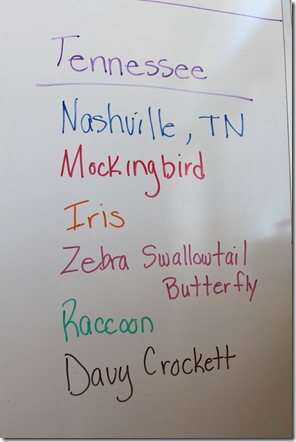 Tennessee
Nashville, TN
Mockingbird
Iris
Zebra Swallowtail
Butterfly
Raccoon
Davy Crockett